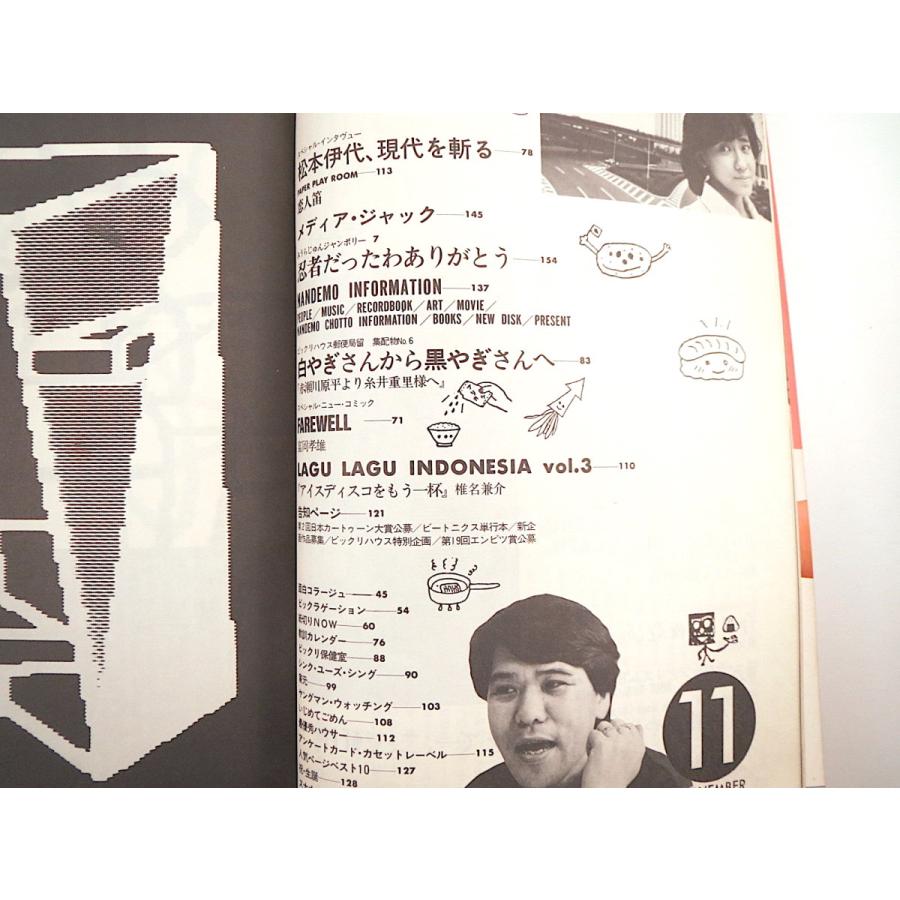 スペシャル・インタヴュー
松本伊代、現代を斬る—78
PAPER PLAY ROOM—113
恋人笛
メディア・ジャック—145
みうらじゅんジャンボリー 7
忍者だったわありがとう—154
NANDEMO INFORMATION—137
PEOPLE／MUSIC／RECORDBOOK／ART／MOVIE／
NANDEMO CHOTTO INFORMATION／BOOKS／NEW DISK／PRESENT
ビックリハウス郵便局留 集配物No.6
白やぎさんから黒やぎさんへ—83
『赤瀬川原平より糸井重里様へ』
スペシャル・ニュー・コミック
FAREWELL—71
孝雄
LAGU LAGU INDONESIA vol.3—110
『アイスディスコをもう一杯』椎名兼介
告知ページ—121
第2回日本カートゥーン大賞公募／ビートニクス単行本／新企
画作品募集／ビックリハウス特別企画／第19回エンピツ賞公募
面白コラージュ—45
ビックラゲーション—54
切りNOW—60
教訓カレンダー—76
ビックリ保健室—88
シンク・ユーズ・シング—90
元—99
ヤングマン・ウォッチング—103
いじめてごめん—108
最優秀ハウサー—112
アンケートカード・カセットレーベル—115
人気ページベスト10—127
生誕—128
11